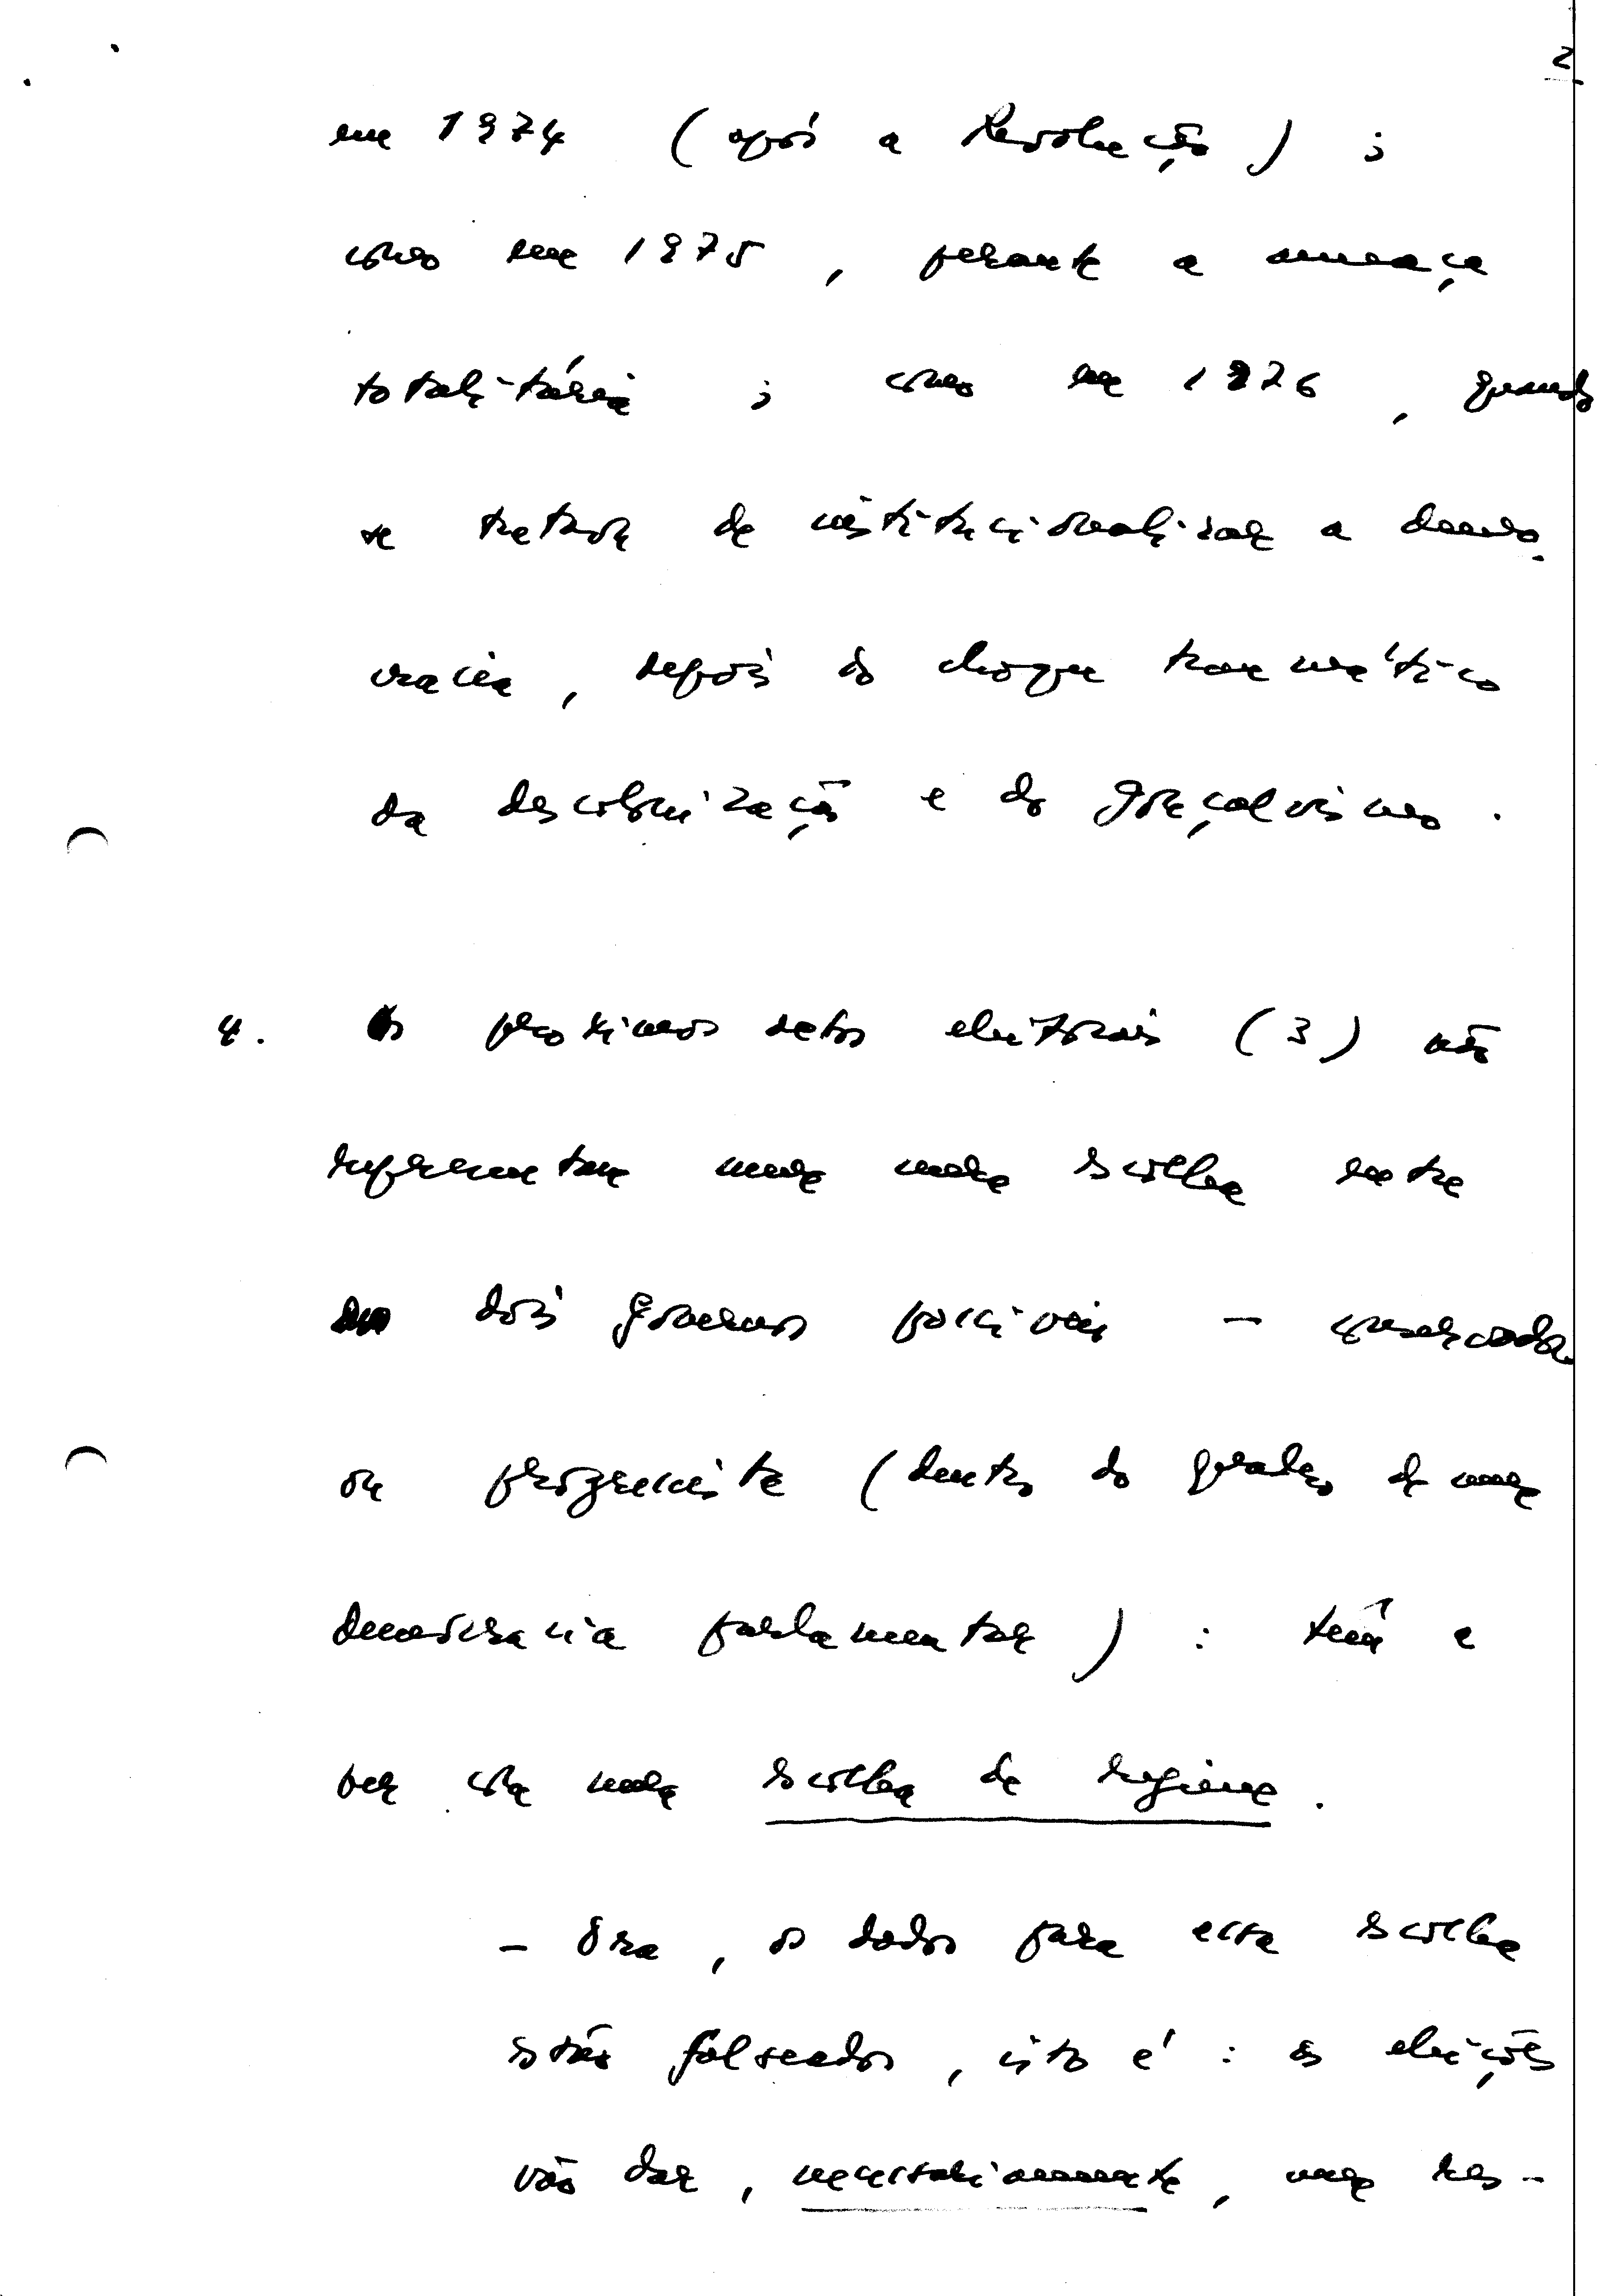 2
em 1974 (após a Revolução);
como em 1975, perante a ameaça
totalitária; como em 1976, quando
se tratou de institucionalizar a demo-
cracia, depois do choque traumático
da descolonização e do gonçalvismo.
4. Os proximos actos eleitorais (3) não
representam uma mera escolha entre
dois governos possíveis - conservador
ou progressista (dentro do quadro de uma
democracia parlamentar): têm a
ver com uma escolha de regime.
- Ora, os dados para essa escolha
estão falseados, isto é: as eleições
vão dar, necessariamente, um res-